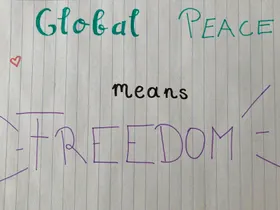 Global PEACE
means
FREEDOM